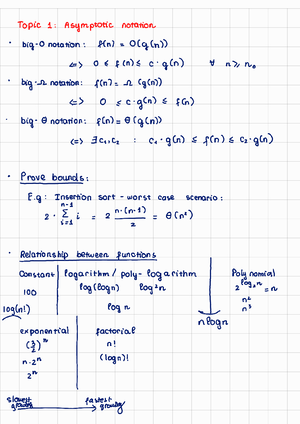 Topic 1: Asymptotic notation
• big-O notation: f(n) = O(g(n))
<=> 0 ≤ f(n) ≤ c·g(n) ∀ n ≥ n₀
• big-Ω notation: f(n) = Ω(g(n))
<=> 0 ≤ c·g(n) ≤ f(n)
• big-θ notation: f(n) = θ(g(n))
(=> ∃ c₁,c₂ : c₁·g(n) ≤ f(n) ≤ c₂·g(n)
• Prove bounds:
E.g: Insertion sort - worst case scenario:
2· Σ_{i=1}^{n-1} i = 2 n·(n-1)/2 = θ(n²)
• Relationship between functions
Constant logarithm / poly-logarithm Polynomial
100 log(logn) log²n 2^{log₂n} = n
log(n!) logn n²
n³
nlogn
exponential factorial
(3/2)ⁿ n!
n·2ⁿ (logn)!
2ⁿ
slowest growing → fastest growing